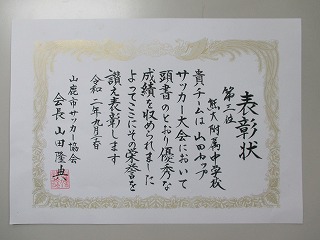 表彰状
第三位
熊大附属中学校
貴チームは山田カップ
サッカー大会において
頭書のとおり優秀な
成績を収められました
よってここにその栄誉を
讃え表彰します
令和二年九月
山鹿市サッカー協会
会長 山田隆典